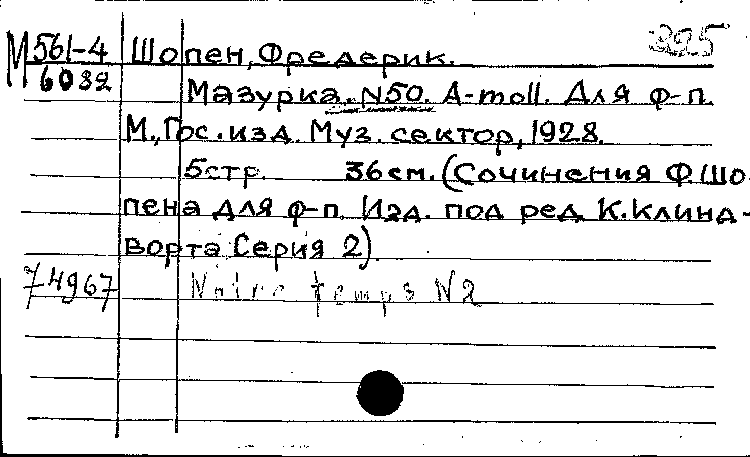 325
М 561-4 Шопен, Фредерик.
6032
Мазурка. N50. A-moll. Для ф-п.
М., Гос. изд. Муз. сектор, 1928.
5стр. 36см. (Сочинения Ф. Шо-
пена для ф-п. Изд. под ред. К. Клинд-
ворта Серия 2).
74967 Notre temps N2